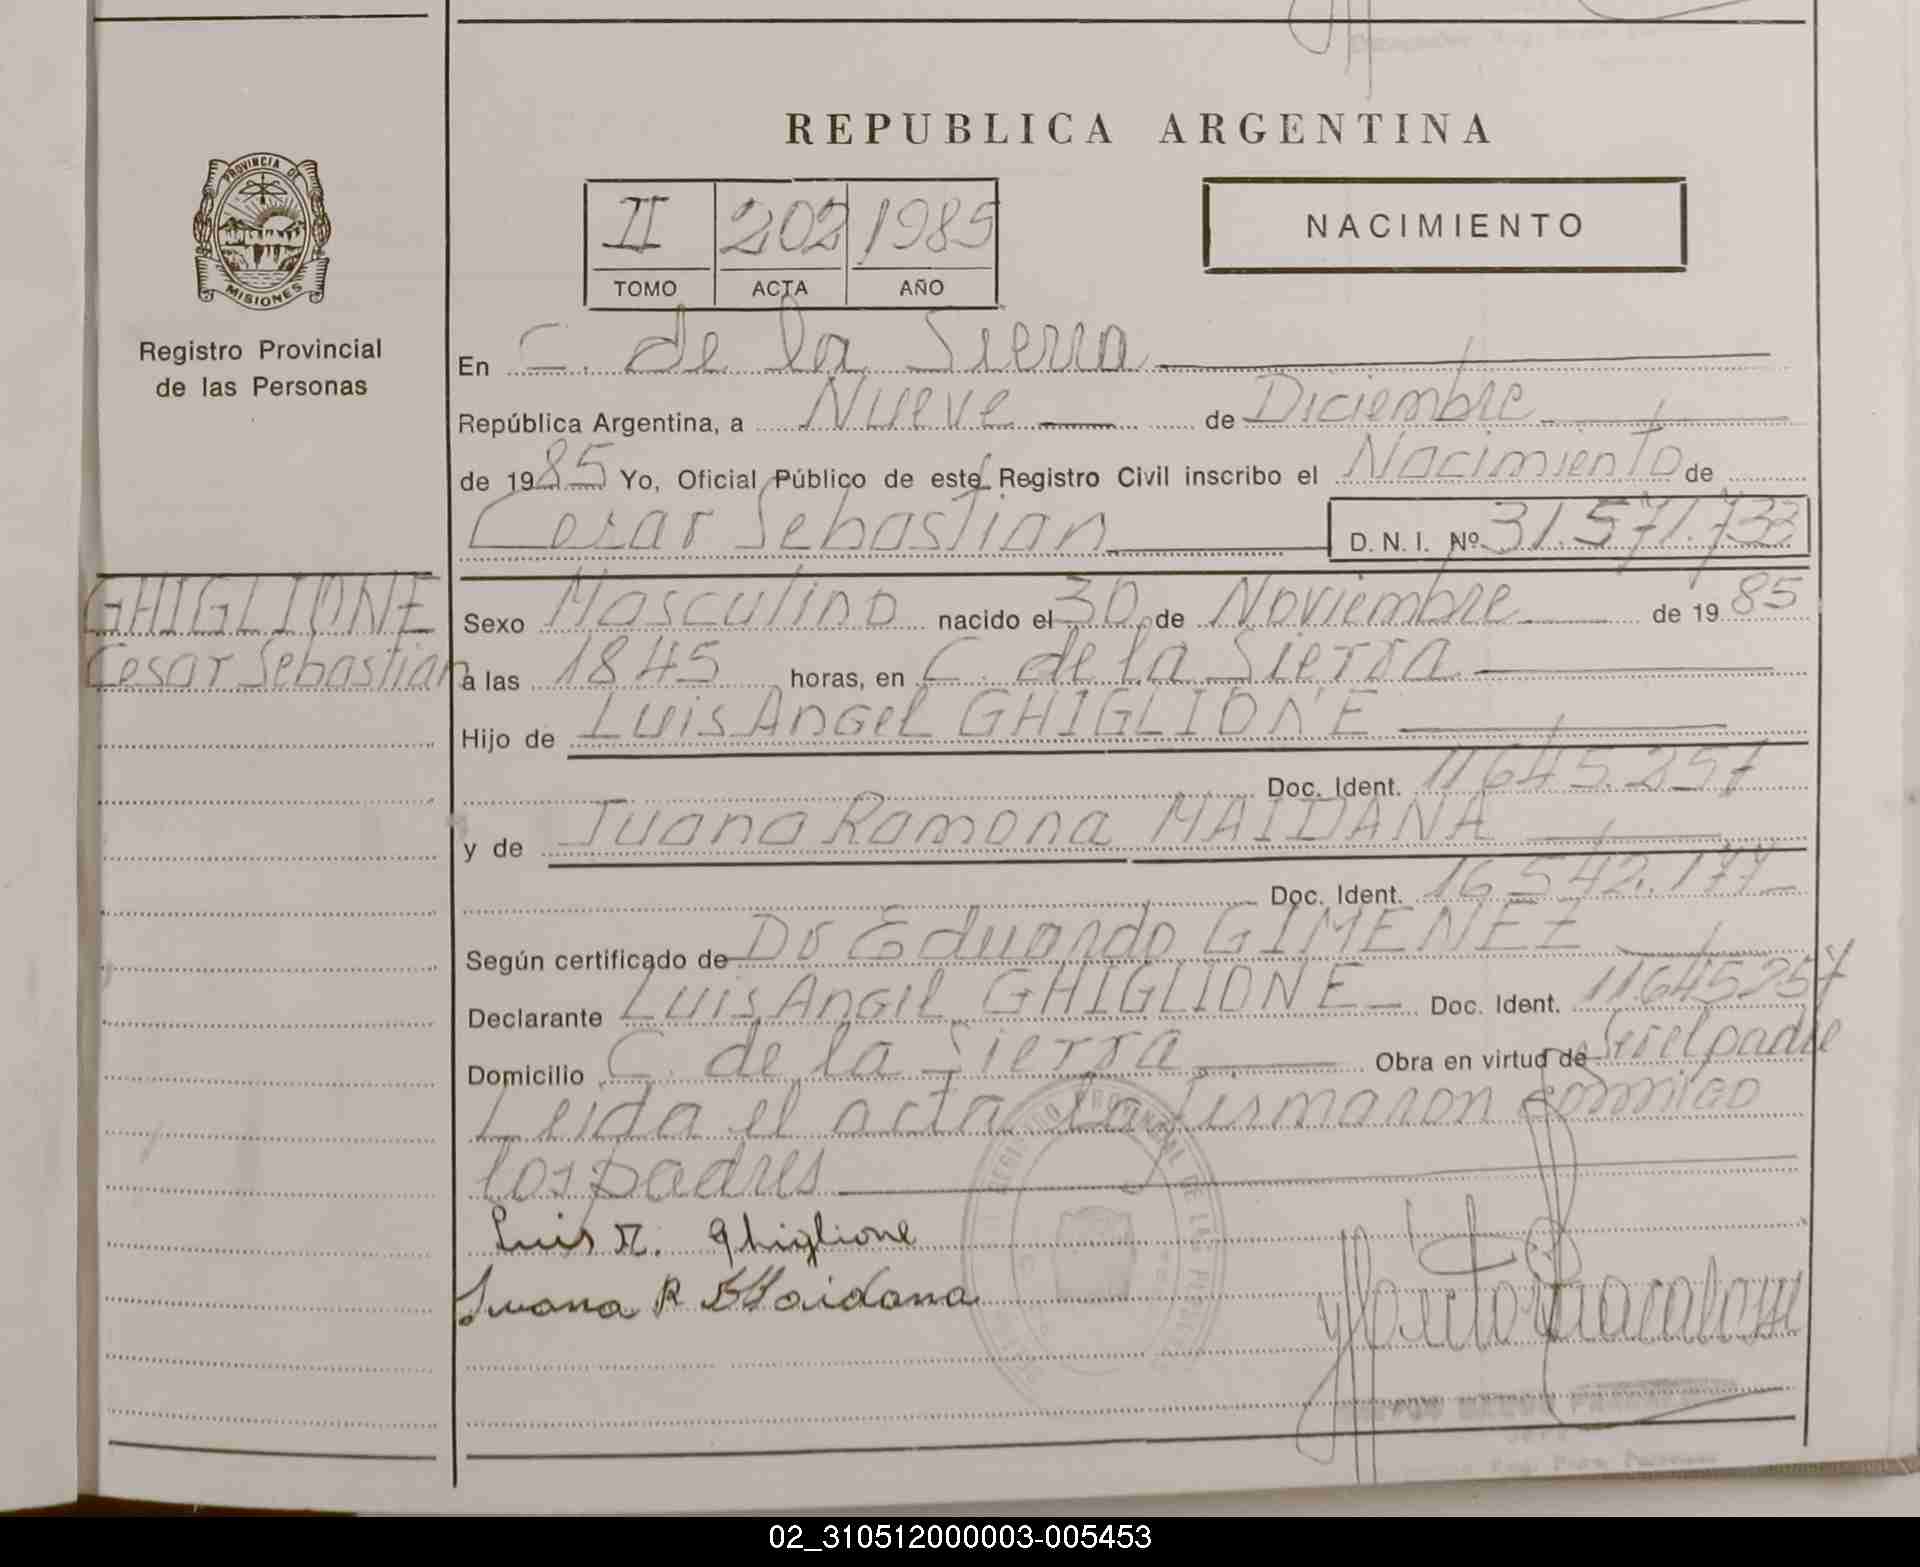 REPUBLICA ARGENTINA
PROVINCIA DE
MISIONES
Registro Provincial
de las Personas
II 202 1985
TOMO ACTA AÑO
NACIMIENTO
En C. de la Sierra
República Argentina, a Nueve de Diciembre
de 1985 Yo, Oficial Público de este Registro Civil inscribo el Nacimiento de
Cesar Sebastian D. N. I. Nº 31.571.733
GHIGLIONE
Cesar Sebastian
Sexo Masculino nacido el 30 de Noviembre de 1985
a las 1845 horas, en C. de la Sierra
Hijo de Luis Angel GHIGLIONE
Doc. Ident. 11645.257
y de Juana Ramona MAIDANA
Doc. Ident. 16542.177
Según certificado de Dr Eduardo GIMENEZ
Declarante Luis Angel GHIGLIONE Doc. Ident. 11.645.257
Domicilio C. de la Sierra Obra en virtud de ser el padre
Leida el acta la firmaron conmigo
los padres
Luis A. Ghiglione
Juana R Maidana
REGISTRO PROVINCIAL DE LAS PERSONAS
02_310512000003-005453